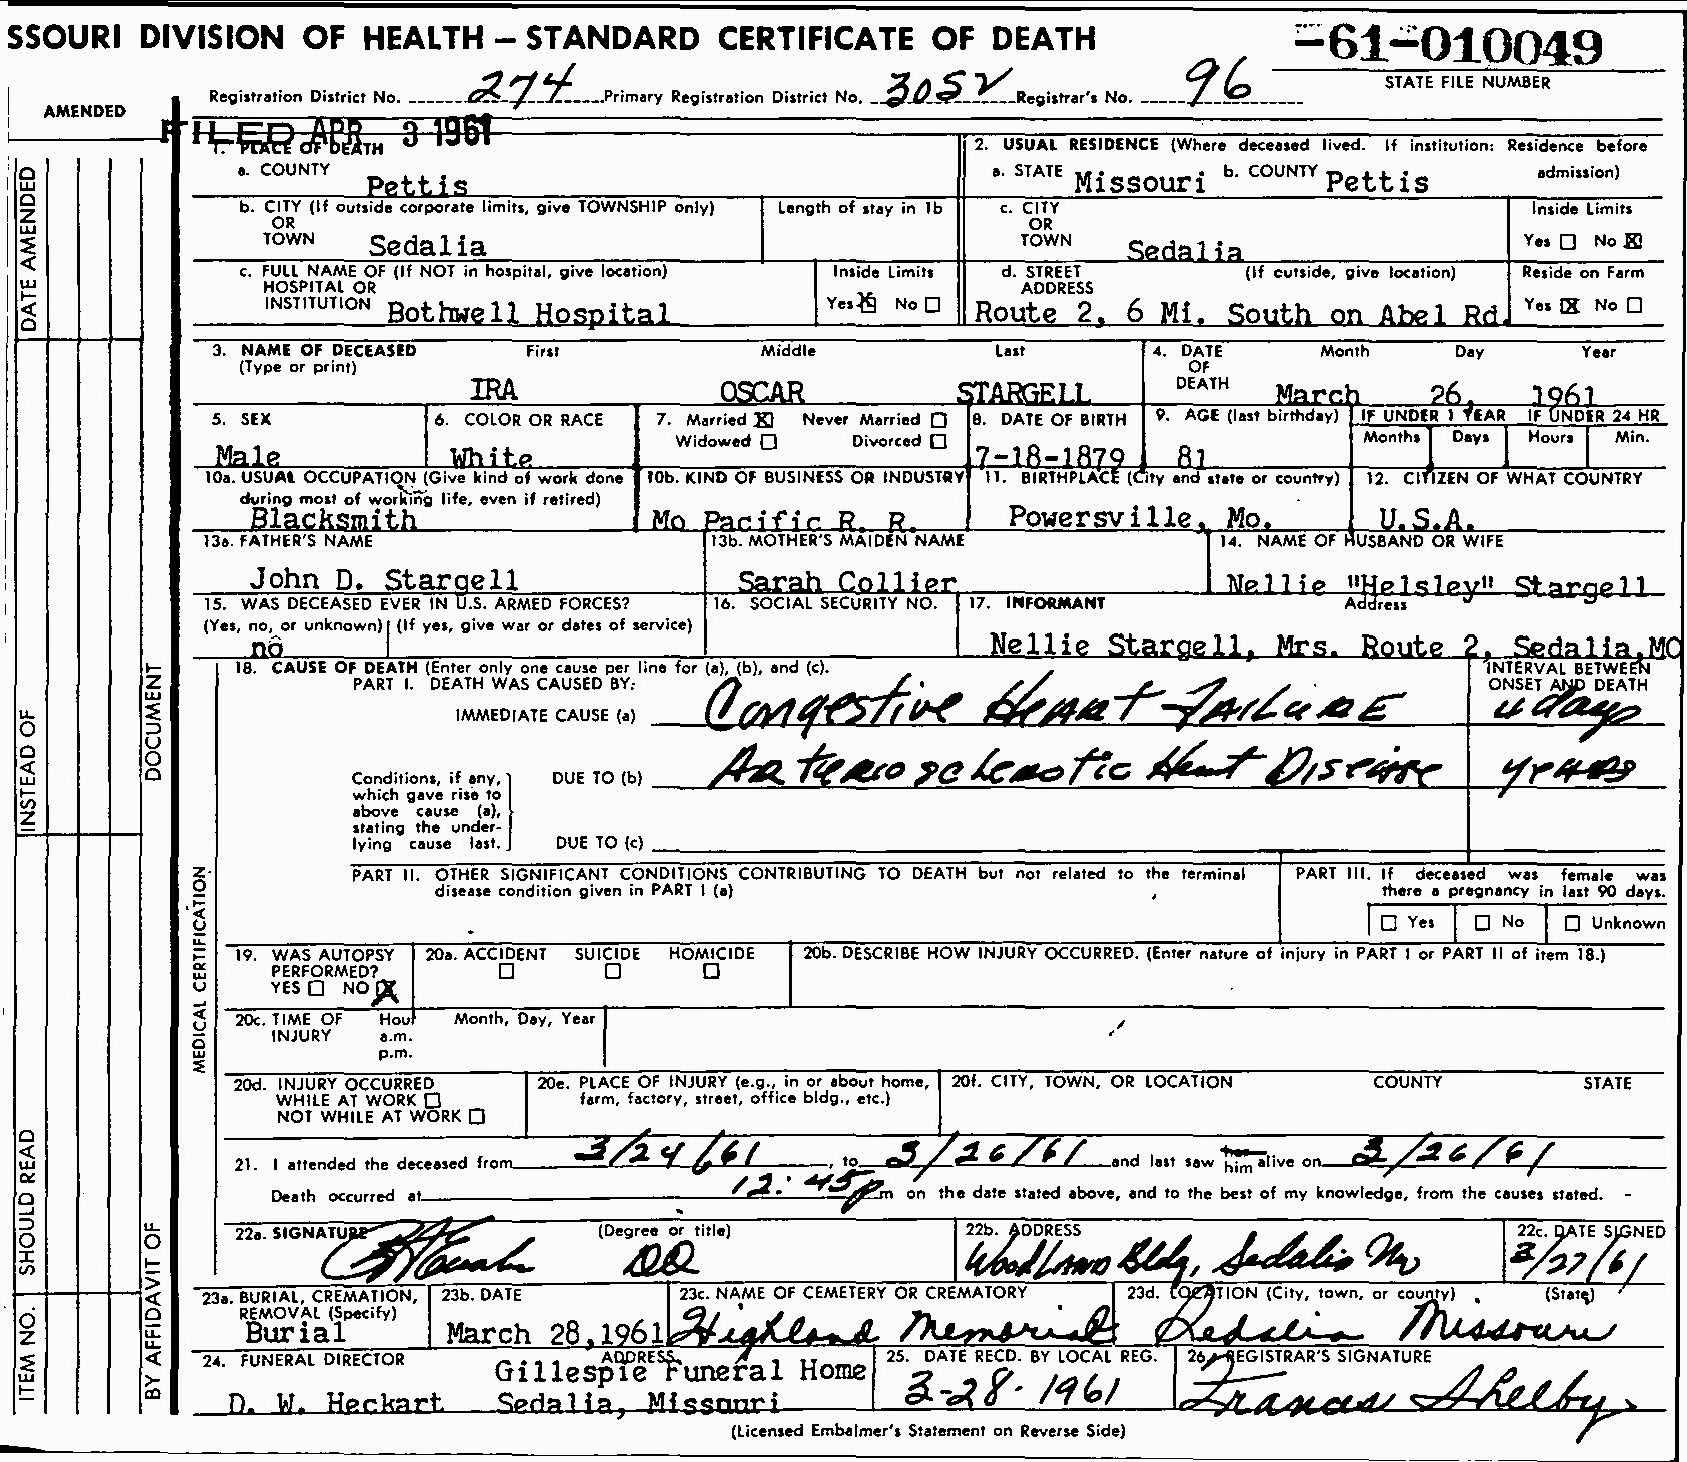 SSOURI DIVISION OF HEALTH – STANDARD CERTIFICATE OF DEATH
-61-010049
STATE FILE NUMBER
Registration District No. 274 Primary Registration District No. 3052 Registrar's No. 96
AMENDED
FILED APR 3 1961
1. PLACE OF DEATH
a. COUNTY Pettis
2. USUAL RESIDENCE (Where deceased lived. If institution: Residence before admission)
a. STATE Missouri b. COUNTY Pettis
b. CITY (If outside corporate limits, give TOWNSHIP only) OR TOWN Sedalia
Length of stay in 1b
c. CITY OR TOWN Sedalia
Inside Limits
Yes ☐ No ☒
c. FULL NAME OF (If NOT in hospital, give location) HOSPITAL OR INSTITUTION Bothwell Hospital
Inside Limits
Yes ☒ No ☐
d. STREET ADDRESS (If outside, give location)
Route 2, 6 Mi. South on Abel Rd.
Reside on Farm
Yes ☒ No ☐
3. NAME OF DECEASED (Type or print)
First Middle Last
IRA OSCAR STARGELL
4. DATE OF DEATH
Month Day Year
March 26, 1961
5. SEX
Male
6. COLOR OR RACE
White
7. Married ☒ Never Married ☐
Widowed ☐ Divorced ☐
8. DATE OF BIRTH
7-18-1879
9. AGE (last birthday)
81
IF UNDER 1 YEAR
Months Days
IF UNDER 24 HR
Hours Min.
10a. USUAL OCCUPATION (Give kind of work done during most of working life, even if retired)
Blacksmith
10b. KIND OF BUSINESS OR INDUSTRY
Mo Pacific R. R.
11. BIRTHPLACE (City and state or country)
Powersville, Mo.
12. CITIZEN OF WHAT COUNTRY
U.S.A.
13a. FATHER'S NAME
John D. Stargell
13b. MOTHER'S MAIDEN NAME
Sarah Collier
14. NAME OF HUSBAND OR WIFE
Nellie "Helsley" Stargell
15. WAS DECEASED EVER IN U.S. ARMED FORCES?
(Yes, no, or unknown) (If yes, give war or dates of service)
no
16. SOCIAL SECURITY NO.
17. INFORMANT Address
Nellie Stargell, Mrs. Route 2, Sedalia,MO
18. CAUSE OF DEATH (Enter only one cause per line for (a), (b), and (c).
PART I. DEATH WAS CAUSED BY:
INTERVAL BETWEEN ONSET AND DEATH
IMMEDIATE CAUSE (a) Congestive Heart Failure 4 days
Conditions, if any, which gave rise to above cause (a), stating the underlying cause last.
DUE TO (b) Arteriosclerotic Heart Disease years
DUE TO (c)
PART II. OTHER SIGNIFICANT CONDITIONS CONTRIBUTING TO DEATH but not related to the terminal disease condition given in PART I (a)
PART III. If deceased was female was there a pregnancy in last 90 days.
☐ Yes ☐ No ☐ Unknown
19. WAS AUTOPSY PERFORMED?
YES ☐ NO ☒
20a. ACCIDENT SUICIDE HOMICIDE
☐ ☐ ☐
20b. DESCRIBE HOW INJURY OCCURRED. (Enter nature of injury in PART I or PART II of item 18.)
20c. TIME OF INJURY Hour Month, Day, Year
a.m.
p.m.
20d. INJURY OCCURRED
WHILE AT WORK ☐
NOT WHILE AT WORK ☐
20e. PLACE OF INJURY (e.g., in or about home, farm, factory, street, office bldg., etc.)
20f. CITY, TOWN, OR LOCATION COUNTY STATE
21. I attended the deceased from 3/24/61, to 3/26/61 and last saw her him alive on 3/26/61
Death occurred at 12:45p m on the date stated above, and to the best of my knowledge, from the causes stated.
22a. SIGNATURE (Degree or title)
DO
22b. ADDRESS
Woodland Bldg, Sedalia Mo
22c. DATE SIGNED
3/27/61
23a. BURIAL, CREMATION, REMOVAL (Specify)
Burial
23b. DATE
March 28,1961
23c. NAME OF CEMETERY OR CREMATORY
Highland Memorial
23d. LOCATION (City, town, or county) (State)
Sedalia Missouri
24. FUNERAL DIRECTOR ADDRESS
Gillespie Funeral Home
D. W. Heckart Sedalia, Missouri
25. DATE RECD. BY LOCAL REG.
3-28-1961
26. REGISTRAR'S SIGNATURE
Frances Shelby
(Licensed Embalmer's Statement on Reverse Side)
DATE AMENDED
INSTEAD OF
DOCUMENT
MEDICAL CERTIFICATION
SHOULD READ
ITEM NO.
BY AFFIDAVIT OF